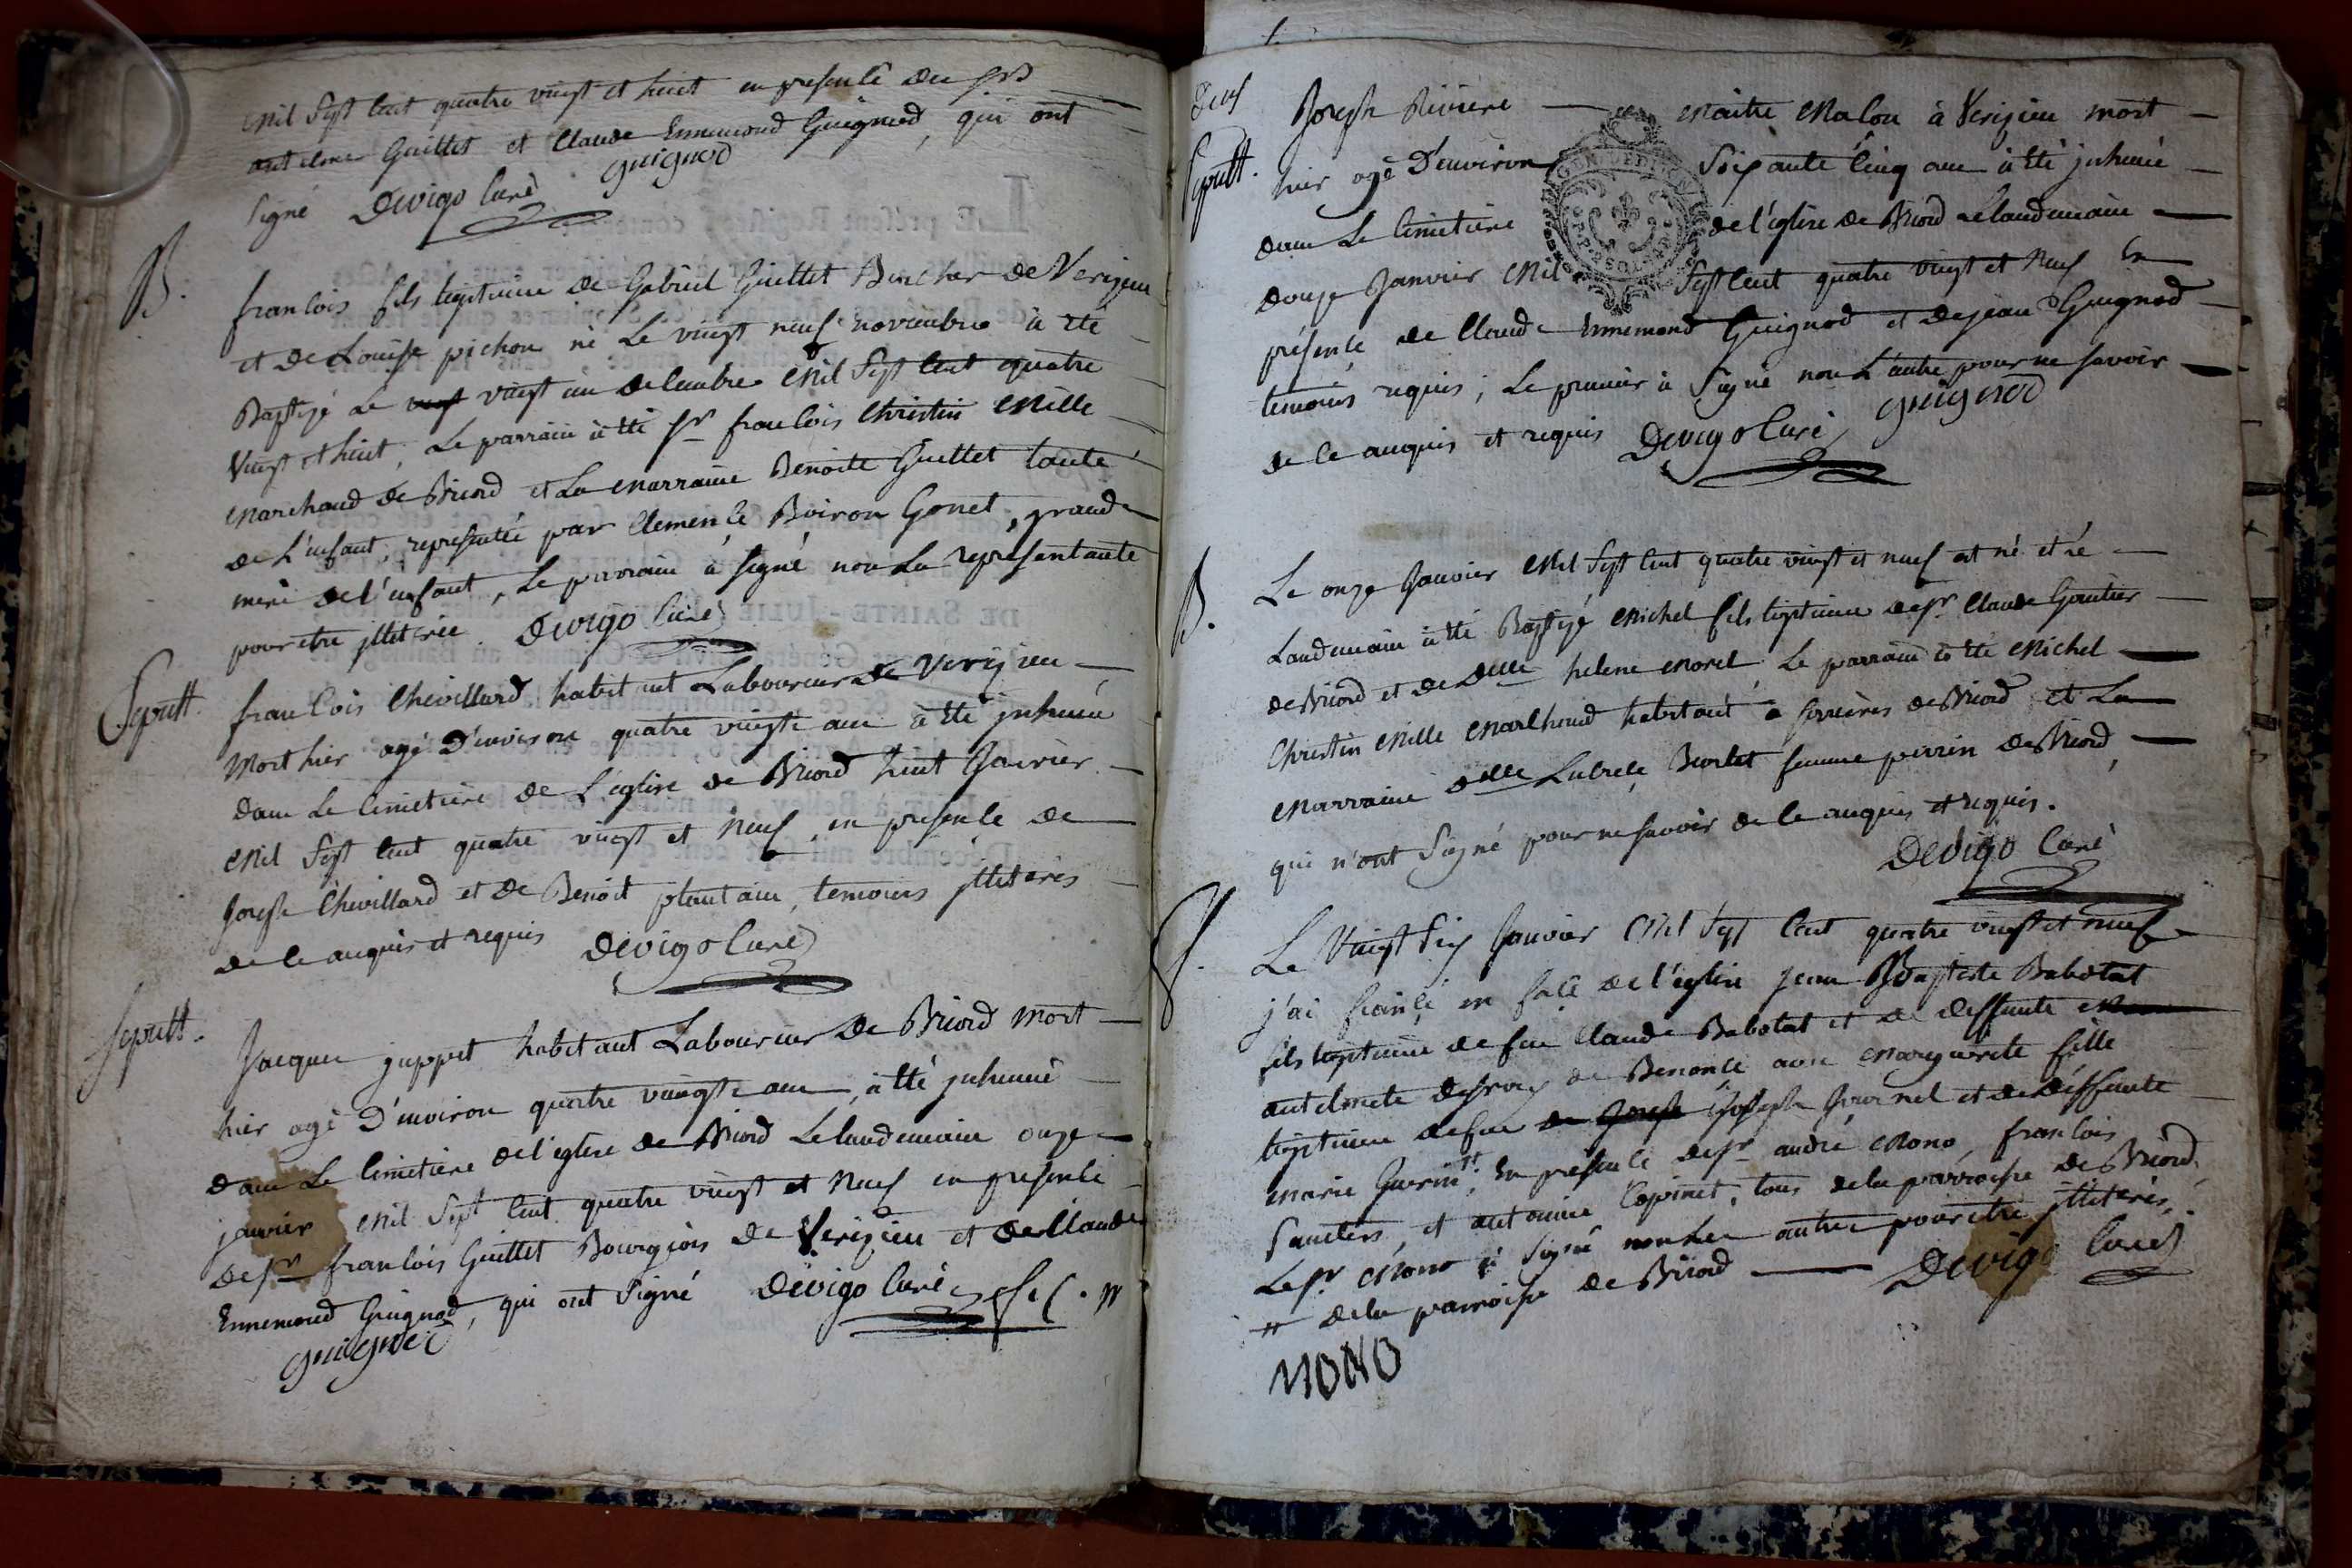 mil sept cent quatre vingt et huit en presence des srs
antelme Guillet et Claude Ennemond Guignod, qui ont
signé Devigo Curé guignod
B. francois fils legitime de Gabriel Guillet Boucher de Verizieu
et de Louise pichon né Le vingt neuf novembre à été
Baptizé Le vingt un decembre mil sept cent quatre
vingt et huit, Le parrain à été sr francois Christin Mille
marchand de Briord et La marraine Benoite Guillet tante
de L'enfant, representée par Clemence Boiron Gonet, grande
mere de l'enfant, Le parrain à signé non La representante
pour etre jlleterée. Devigo Curé
Sepult. francois Chevillard habitant Laboureur de Verizieu
mort hier agé D'environ quatre vingts ans à été jnhumé
dans Le Cimetiere de L'église de Briord huit Janvier
mil sept cent quatre vingt et neuf, en presence de
Joseph Chevillard et de Benoit plantain, temoins jlleterés
de ce anquis et requis Devigo Curé
sepult. Jacques juppet habitant Laboureur de Briord mort
hier agé D'environ quatre vingts ans, à été jnhumé
dans Le Cimetiere de l'église de Briord Le landemain onze
janvier mil sept cent quatre vingt et neuf en presence
de sr francois Guillet Bourgeois de Verizieu et de Claude
Ennemond Guignod, qui ont signé Devigo Curé
guignod
Joseph Riviere maitre maçon à Verizieu mort
Sepult. hier agé D'environ soixante cinq ans à été jnhumé
dans Le Cimetiere de l'église de Briord Le landemain
douze Janvier mil sept cent quatre vingt et neuf En
présence de Claude Ennemond Guignod et de jean Guignod
temoins requis, Le premier à signé non L'autre pour ne savoir
de ce anquis et requis Devigo Curé guignod
B. Le onze Janvier mil sept cent quatre vingt et neuf est né et Le
Landemain à été Baptizé michel fils legitime de sr Claude Gontier
de Briord et de Delle helene morel, Le parrain à été michel
Christin mille marchand habitant à serrières de Briord et La
marraine delle Lucrece Borlet femme perrin de Briord,
qui n'ont signé pour ne savoir de ce anquis et requis.
Devigo Curé
f. Le Vingt six Janvier mil sept cent quatre vingt et neuf
j'ai fiancé en face de l'église jean Baptiste Babolat
fils legitime de feu Claude Babolat et de deffunte
antelmete de Benonce avec marguerite fille
legitime de feu joseph Journel et de deffunte
marie Guerin, En présence de sr andré mono, francois
et antoine Copinet, tous de la parroisse de Briord,
Le sr mono à signé non Les autres pour etre jlleterés,
de la parroisse de Briord Devigo Curé
MONO